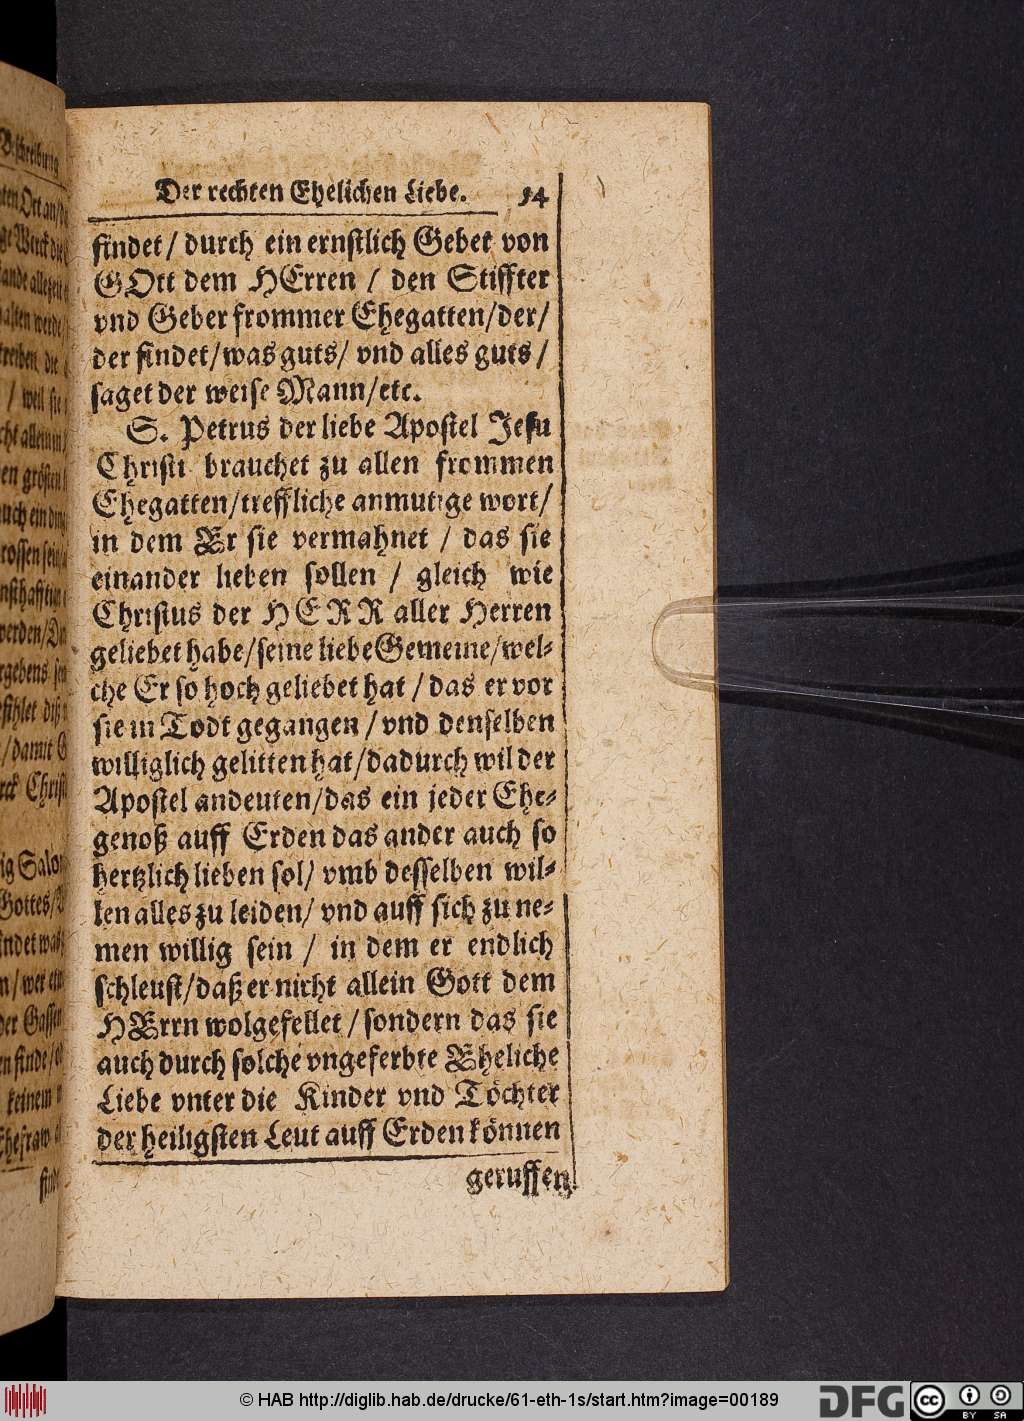 Der rechten Ehelichen Liebe. 54
findet / durch ein ernstlich Gebet von
GOtt dem HErren / den Stiffter
vnd Geber frommer Ehegatten/der/
der findet/was guts/ vnd alles guts /
saget der weise Mann/etc.
S. Petrus der liebe Apostel Jesu
Christi brauchet zu allen frommen
Ehegatten/treffliche anmutige wort/
in dem Er sie vermahnet / das sie
einander lieben sollen / gleich wie
Christus der HERR aller Herren
geliebet habe/seine liebe Gemeine/wel-
che Er so hoch geliebet hat / das er vor
sie in Todt gegangen / vnd denselben
williglich gelitten hat/dadurch wil der
Apostel andeuten/das ein jeder Ehe-
genoß auff Erden das ander auch so
hertzlich lieben sol/ vmb desselben wil-
len alles zu leiden/ vnd auff sich zu ne-
men willig sein / in dem er endlich
schleust/daß er nicht allein Gott dem
HErrn wolgefellet / sondern das sie
auch durch solche vngeferbte Eheliche
Liebe vnter die Kinder vnd Töchter
der heiligsten Leut auff Erden können
geruffen
© HAB http://diglib.hab.de/drucke/61-eth-1s/start.htm?image=00189
DFG
cc
BY SA